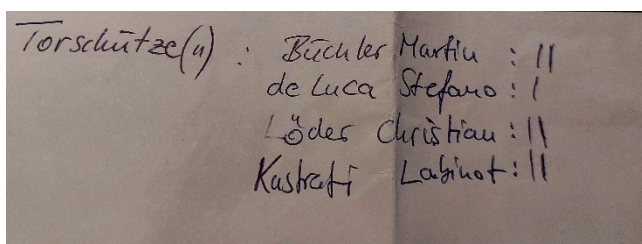 Torschütze(n) : Büchler Martin : ||
de Luca Stefano : |
Löder Christian : ||
Kastrati Labinot : ||